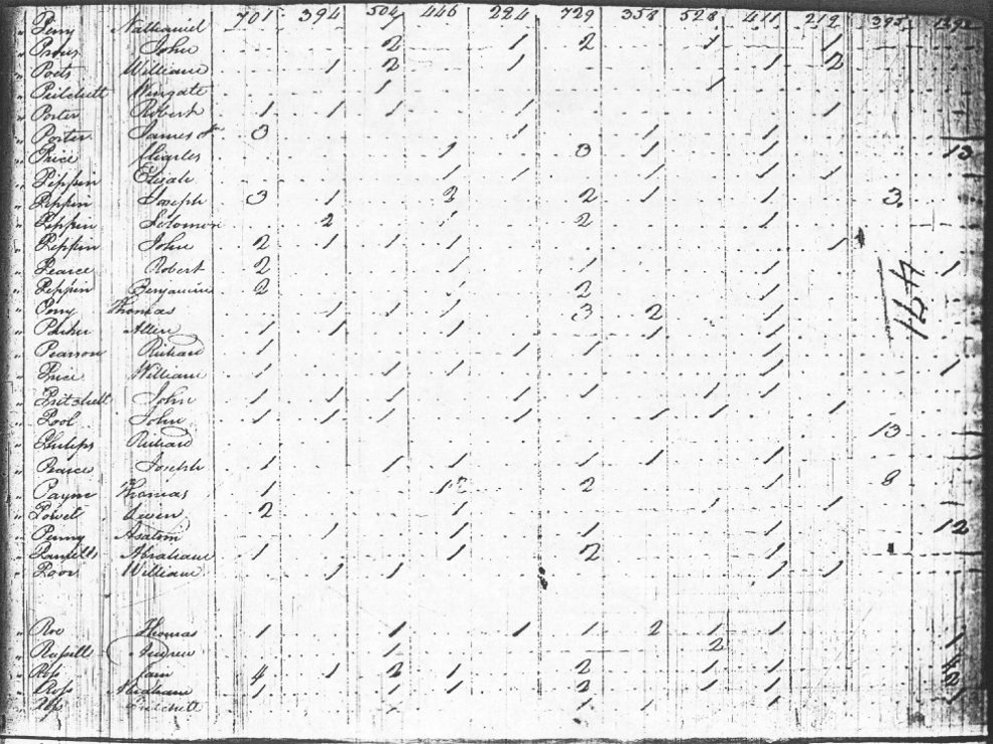 701 394 504 446 224 729 358 528 411 219 395
" Perry Nathaniel
" John 2 1 2 1 1
" Poets William 1 2 1 1 2
" Pritchett Wingate 1 1
" Porter Robert 1 1 1 1 1
" Porter James 3 1 1 1
" Price Charles 1 3 1 1 13
" Peppin Elijah 1 1 1 1 1
" Peppin Joseph 3 1 2 2 1 1 3
" Peppin Solomon 2 1 2 1
" Peppin John 2 1 1 1 1
" Pearce Robert 2 1 1 1 1
" Peppin Benjamin 2 1 2 1
" Thomas 1 1 1 3 2 1
" Parker Allen 1 1 1 1 1
" Pearson Richard 1 1 1 1
" Price William 1 1 1 1 1
" Pritchett John 1 1 1 1 1 1 1
" Pool John 1 1 1 1 1 1 1
" Philips Richard 13
" Pearce Joseph 1 1 1 1 1 1
" Payne Thomas 1 2 1 8
" Owen 2 1 1 1
" Penny 1 1 1 1 12
" Abraham 1 1 2 1
" Poor William 1 1 1 1
" Roe Thomas 1 1 1 1 2 1 1
" Russell Andrew 1 2 1
" Ross 4 1 2 1 2 1 1
" Ross Abraham 1 1 1 2 1 1
" Ross 1 1 1